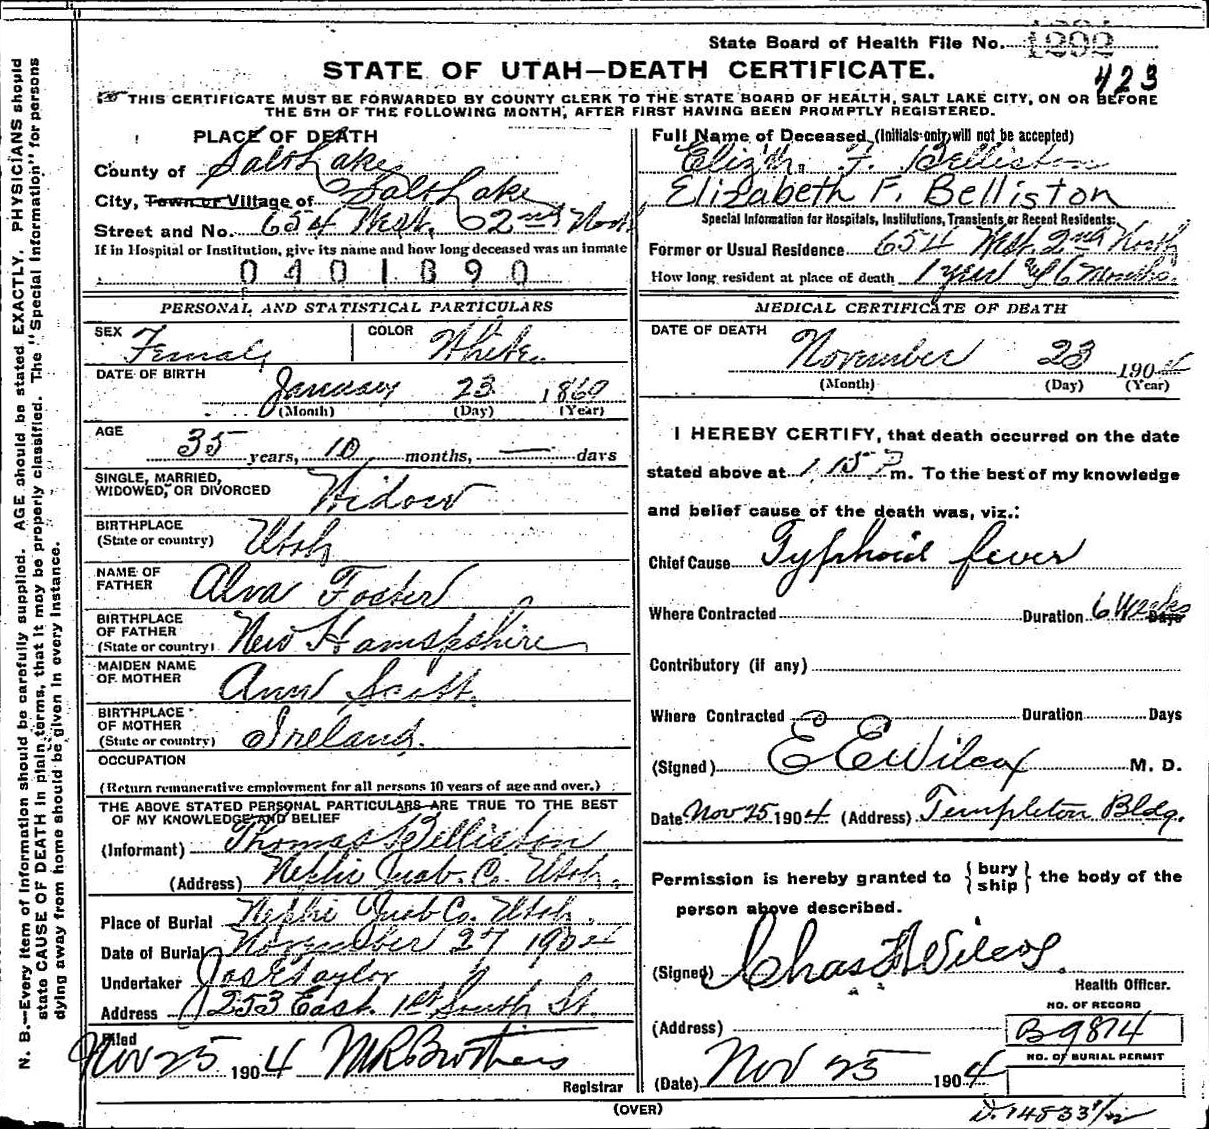 State Board of Health File No. 1292
STATE OF UTAH—DEATH CERTIFICATE.
423
THIS CERTIFICATE MUST BE FORWARDED BY COUNTY CLERK TO THE STATE BOARD OF HEALTH, SALT LAKE CITY, ON OR BEFORE
THE 5TH OF THE FOLLOWING MONTH, AFTER FIRST HAVING BEEN PROMPTLY REGISTERED.
PLACE OF DEATH
County of Salt Lake
City, Town or Village of Salt Lake
Street and No. 654 West. 2nd North
If in Hospital or Institution, give its name and how long deceased was an inmate
0401890
Full Name of Deceased (Initials only will not be accepted)
Elizth. F. Belliston
Elizabeth F. Belliston
Special Information for Hospitals, Institutions, Transients or Recent Residents:
Former or Usual Residence 654 West. 2nd North
How long resident at place of death 1 year & 6 months.
PERSONAL AND STATISTICAL PARTICULARS
SEX Female
COLOR White
DATE OF BIRTH January 23 1869
(Month) (Day) (Year)
AGE 35 years, 10 months, — days
SINGLE, MARRIED,
WIDOWED, OR DIVORCED Widow
BIRTHPLACE
(State or country) Utah
NAME OF
FATHER Alva Foster
BIRTHPLACE
OF FATHER
(State or country) New Hamspshire
MAIDEN NAME
OF MOTHER Ann Scott.
BIRTHPLACE
OF MOTHER
(State or country) Ireland.
OCCUPATION
(Return remunerative employment for all persons 10 years of age and over.)
THE ABOVE STATED PERSONAL PARTICULARS ARE TRUE TO THE BEST
OF MY KNOWLEDGE AND BELIEF
(Informant) Thomas Belliston
(Address) Nephi Juab. Co. Utah.
Place of Burial Nephi Juab Co. Utah.
Date of Burial November 27 1904
Undertaker Jos E Taylor
Address 253 East. 1st South St.
Filed
Nov 25 1904 M R Brothers
Registrar
MEDICAL CERTIFICATE OF DEATH
DATE OF DEATH
November 23 1904
(Month) (Day) (Year)
I HEREBY CERTIFY, that death occurred on the date
stated above at 1.15 P m. To the best of my knowledge
and belief cause of the death was, viz.:
Chief Cause Typhoid fever
Where Contracted Duration 6 Weeks Days
Contributory (if any)
Where Contracted Duration Days
(Signed) E E Wilcox M. D.
Date Nov 25 1904 (Address) Templeton Bldg.
Permission is hereby granted to { bury
ship } the body of the
person above described.
(Signed) Chas F Wilcox
Health Officer.
NO. OF RECORD
(Address) B9874
NO. OF BURIAL PERMIT
(Date) Nov 25 1904
(OVER)
N. B.—Every item of information should be carefully supplied. AGE should be stated EXACTLY. PHYSICIANS should
state CAUSE OF DEATH in plain terms, that it may be properly classified. The "Special Information" for persons
dying away from home should be given in every instance.